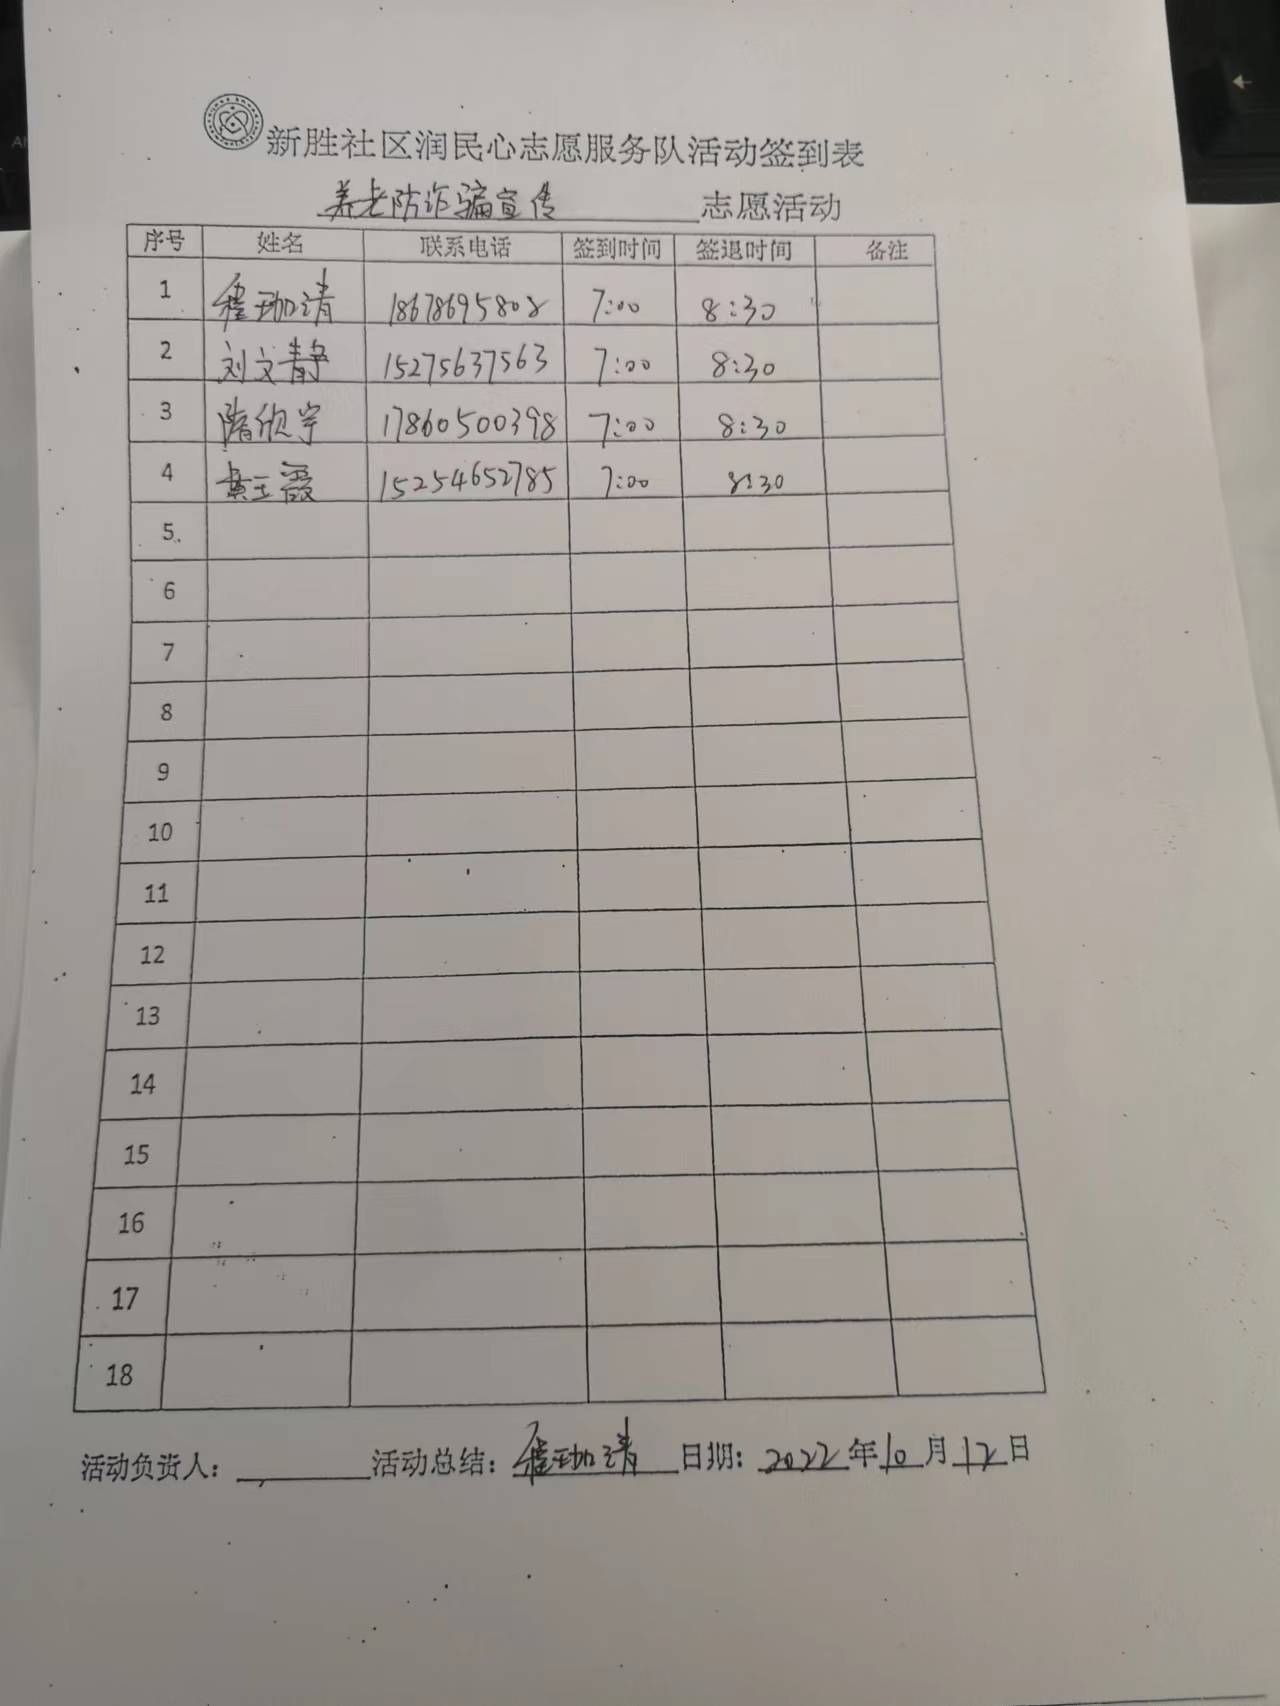 新胜社区润民心志愿服务队活动签到表
养老防诈骗宣传 志愿活动
序号 姓名 联系电话 签到时间 签退时间 备注
1 珈清 18678695808 7:00 8:30
2 刘文静 15275637563 7:00 8:30
3 隋欣宇 17860500398 7:00 8:30
4 黄玉霞 15254652785 7:00 8:30
5
6
7
8
9
10
11
12
13
14
15
16
17
18
活动负责人： 活动总结：珈清 日期：2022年10月12日